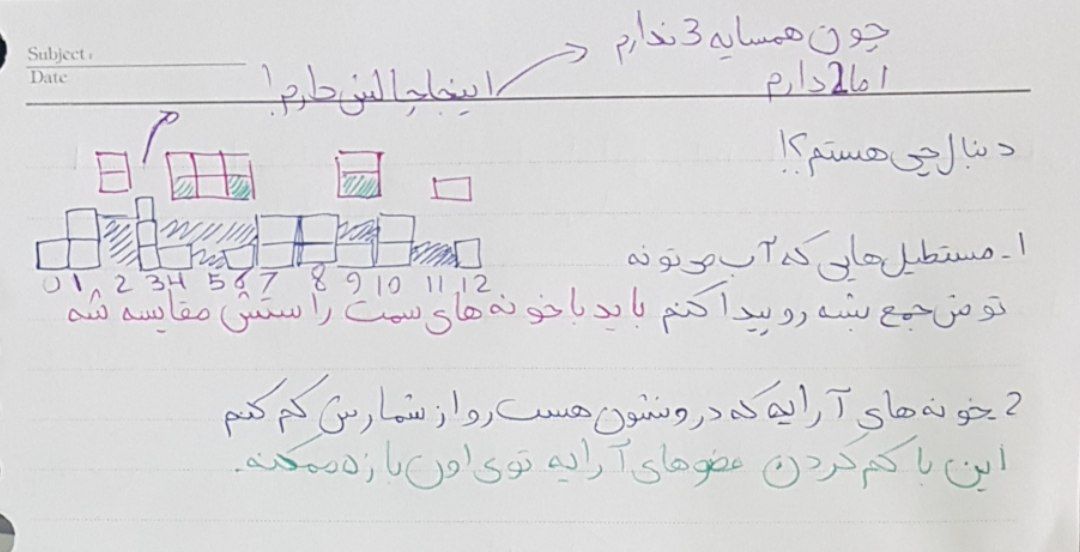 Subject:
Date
چون همسایه 3 ندارم
اما 2 دارم
اینجا چالش دارم!
دنبال چی هستم؟!
1- مستطیل هایی که آب می تونه
0 1 2 3 4 5 6 7 8 9 10 11 12
توش جمع بشه رو پیدا کنم باید با خونه های سمت راستش مقایسه شه
2 خونه های آرایه که درونشون هست رو از شمارش کم کنم
این با کم کردن عضوهای آرایه توی اون بازه ممکنه.